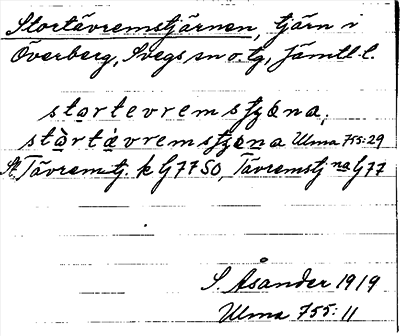 Stortävremstjärnen, tjärn i
Överberg, Svegs sn o. tg, Jämtl. l.
stortevremstjzɷna,
stὰrtávremstjzɷna Ulma 755:29
St. Tävremtj. k G77 SO, Tävremstjna G77
S. Åsander 1919
Ulma 755:11